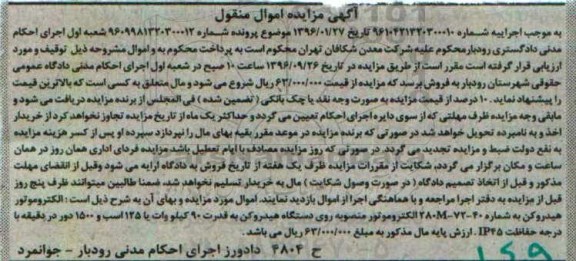 آگهی مزایده اموال منقول
به موجب اجراییه شماره ۹۶۱۰۴۲۱۳۲۰۳۰۰۰۱۰ تاریخ ۱۳۹۶/۰۱/۲۷ موضوع پرونده شماره ۹۶۰۹۹۸۱۳۲۰۳۰۰۰۱۲ شعبه اول اجرای احکام
مدنی دادگستری رودبار محکوم علیه شرکت معدن شکافان تهران محکوم است به پرداخت محکوم به و اموال مشروحه ذیل توقیف و مورد
ارزیابی قرار گرفته است مقرر است از طریق مزایده در تاریخ ۱۳۹۶/۰۹/۲۶ ساعت ۱۰ صبح در شعبه اول اجرای احکام مدنی دادگاه عمومی
حقوقی شهرستان رودبار به فروش برسد که مزایده از قیمت ۶۳/۰۰۰/۰۰۰ ریال شروع می شود و مال متعلق به کسی است که بالاترین قیمت
را پیشنهاد نماید. ۱۰ درصد از قیمت مزایده به صورت وجه نقد یا چک بانکی (تضمین شده) فی المجلس از برنده مزایده دریافت می شود و
مابقی وجه مزایده ظرف مهلتی که از سوی دایره اجرای احکام تعیین می گردد و حداکثر یک ماه از تاریخ مزایده تجاوز نخواهد کرد از خریدار
اخذ و به نامبرده تحویل خواهد شد در صورتی که برنده مزایده در موعد مقرر بقیه بهای مال را نپردازد سپرده او پس از کسر هزینه مزایده
به نفع دولت ضبط و مزایده تجدید می گردد. در صورتی که روز مزایده مصادف با ایام تعطیل باشد مزایده فردای اداری همان روز در همان
ساعت و مکان برگزار می گردد، شکایت از مقررات مزایده ظرف یک هفته از تاریخ فروش به دادگاه ارایه می شود وقبل از انقضای مهلت
مذکور و قبل از اتخاذ تصمیم دادگاه (در صورت وصول شکایت) مال به خریدار تسلیم نخواهد شد. ضمنا طالبین میتوانند ظرف پنج روز
قبل از مزایده به دفتر اجرا مراجعه و با هماهنگی اجرا از اموال بازدید نمایند. اموال مورد مزایده و بهای آن به شرح ذیل است : الکتروموتور
هیدروکن به شماره ۴۰-۷۳-۲۸۰M الکتروموتور منصوبه روی دستگاه هیدروکن به قدرت ۹۰ کیلو وات یا ۱۳۵ اسب و ۱۵۰۰ دور در دقیقه با
درجه حفاظت IP۴۵. ارزش پایه مال مذکور به مبلغ ۶۳/۰۰۰/۰۰۰ ریال می باشد.
ح ۴۸۰۴ دادورز اجرای احکام مدنی رودبار - جوانمرد
۱۶۹